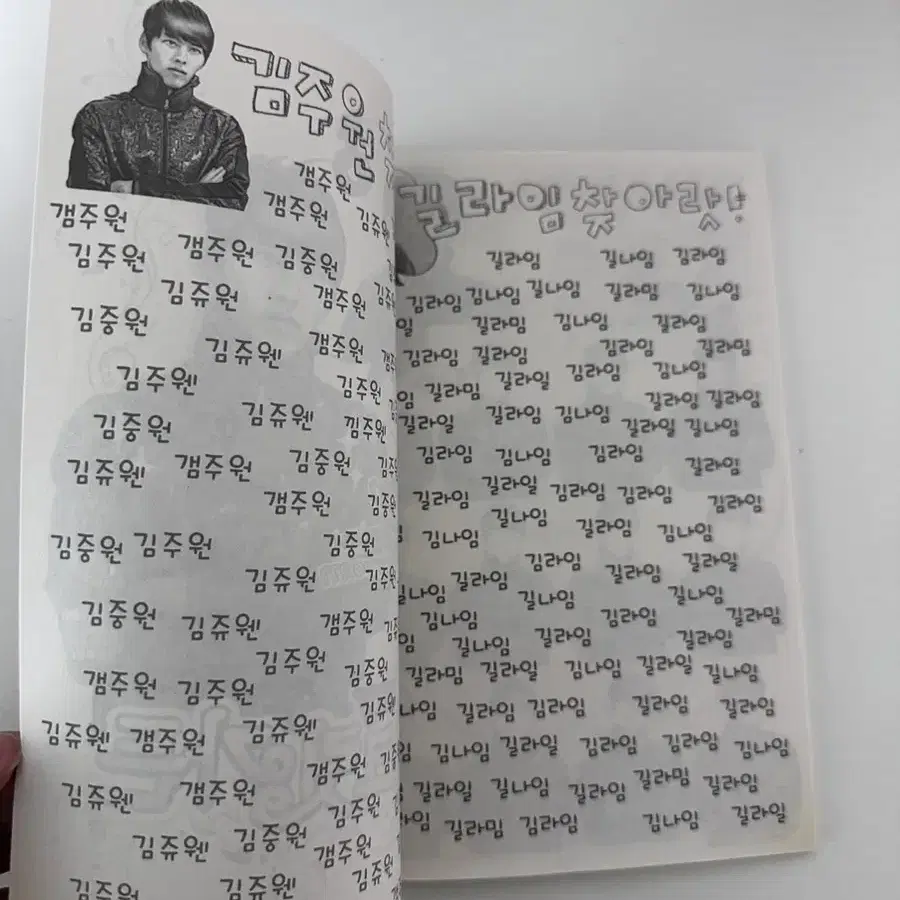 김주원
갬주원
갬주원 갬주원 김쥬웬
김주원 갬주원 김중원
김쥬원 갬주원
김중원
김쥬웬 갬주원
김주웬 김주원
김중원 김쥬웬 낌주원
김쥬웬 갬주원 김중원
갬주원 김중원
김중원 김주원 김중원
김쥬원 김주원
김중원 김쥬웬 갬주원
김주원 김중원
갬주원 김주원
김쥬웬 갬주원 김쥬원
갬주원
김쥬웬 갬주원 김주원
김쥬웬 김중원 갬주원
김주원 김쥬웬 김쥬원
길라임 찾아랏!
길라임 길나임 김라임
김라임 김나임 길나임 길라밈 김나임
길라밈 김나임 길라일
김라임 길라임 김라임 길라밈
길라밈 길라일 김라임 김나임
길라일 길라임 김나임 길라잉 길라임
길라일 길나임
김라임 김나임 김라임 길라임
길라임 길라일 김라임 김라임 김라임
김나임 길나임 길라임 김나임
김라임 길라임 길라일
길나임 길라임 길나임 길나임
김나임 김라임 길라밈
길나임 길라임 길라일
길라밈 길라일 김나임 길라일 길나임
길라임 김라임 길라임 길라임
김나임 길라일 김라임 김라임 김나임
길라일 길나임 길라임 길라밈 길라임
길라밈 김라임 김나임 길라일